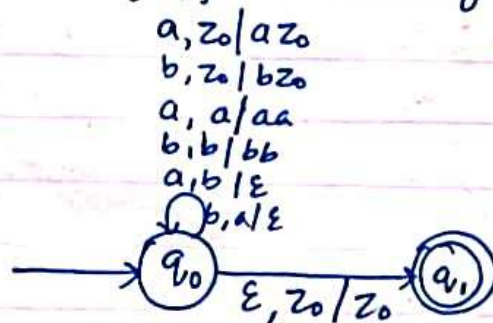 a, z₀ / a z₀
b, z₀ / b z₀
a, a / aa
b, b / bb
a, b / ε
b, a / ε
q₀
q₁
ε, z₀ / z₀